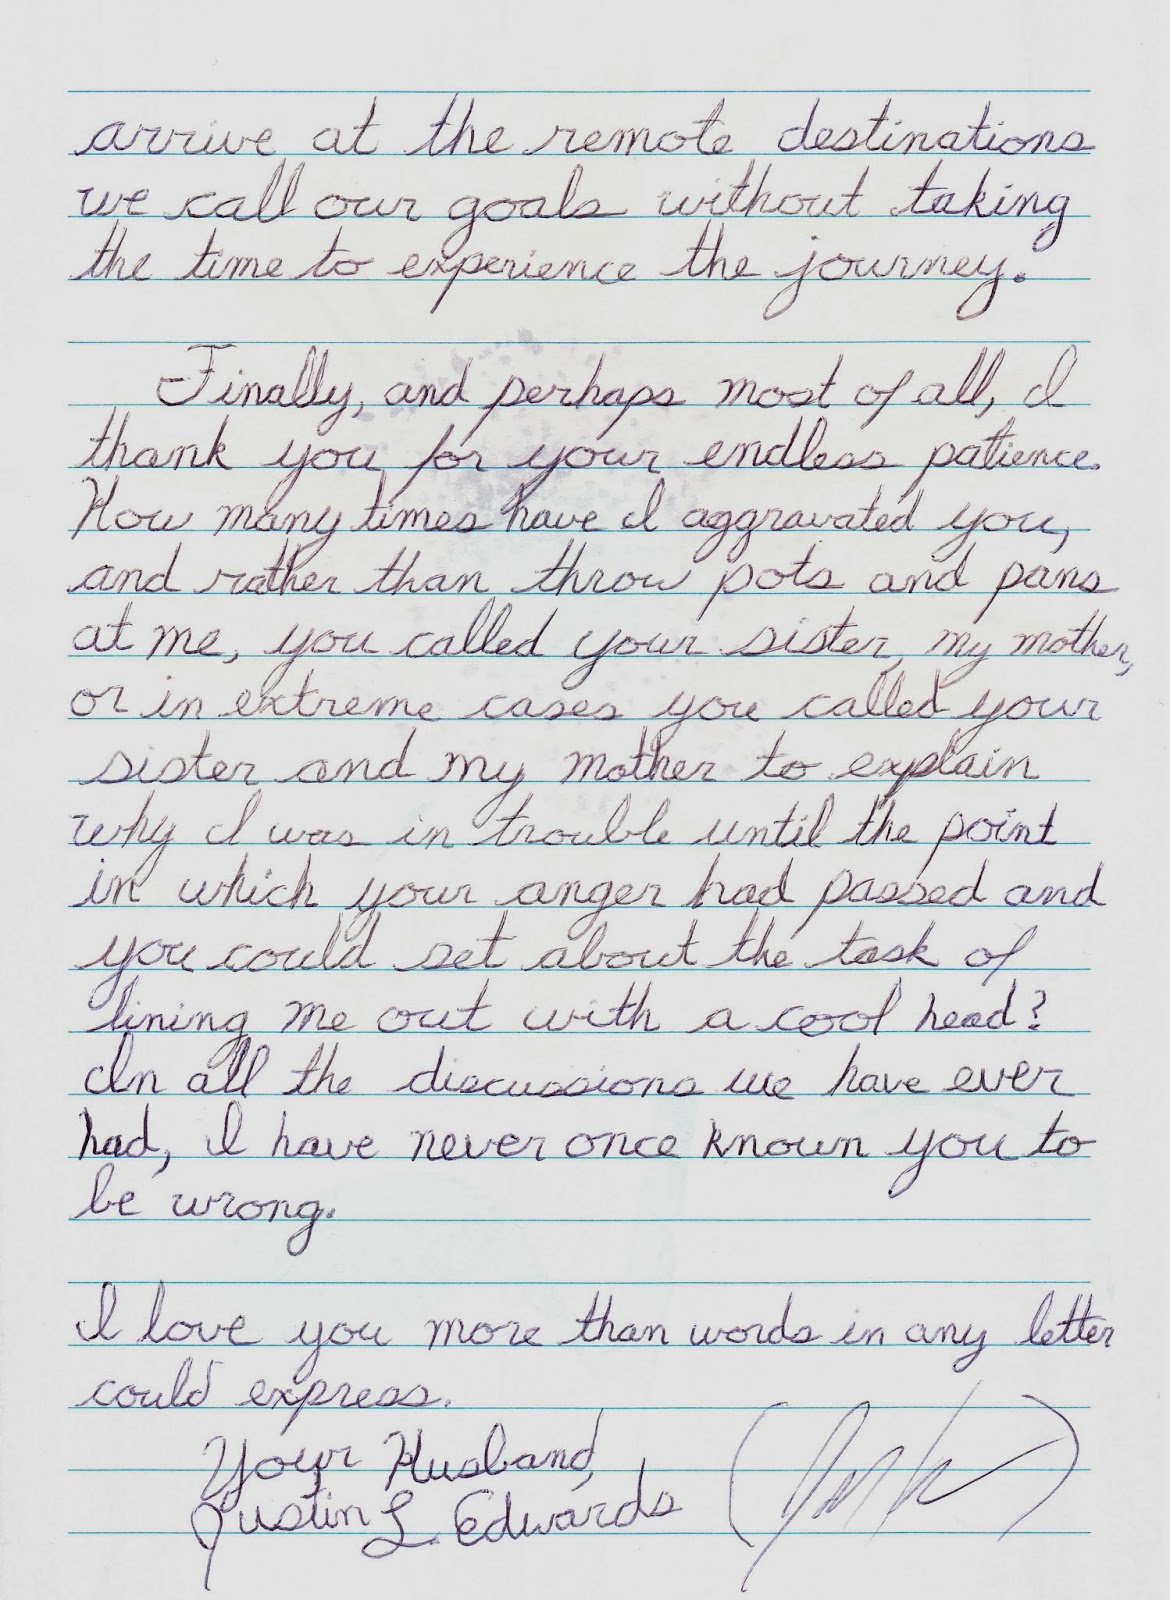 arrive at the remote destinations
we call our goals without taking
the time to experience the journey.
Finally, and perhaps most of all, I
thank you for your endless patience.
How many times have I aggravated you,
and rather than throw pots and pans
at me, you called your sister, my mother,
or in extreme cases you called your
sister and my mother to explain
why I was in trouble until the point
in which your anger had passed and
you could set about the task of
lining me out with a cool head?
In all the discussions we have ever
had, I have never once known you to
be wrong.
I love you more than words in any letter
could express.
Your Husband,
Justin L. Edwards